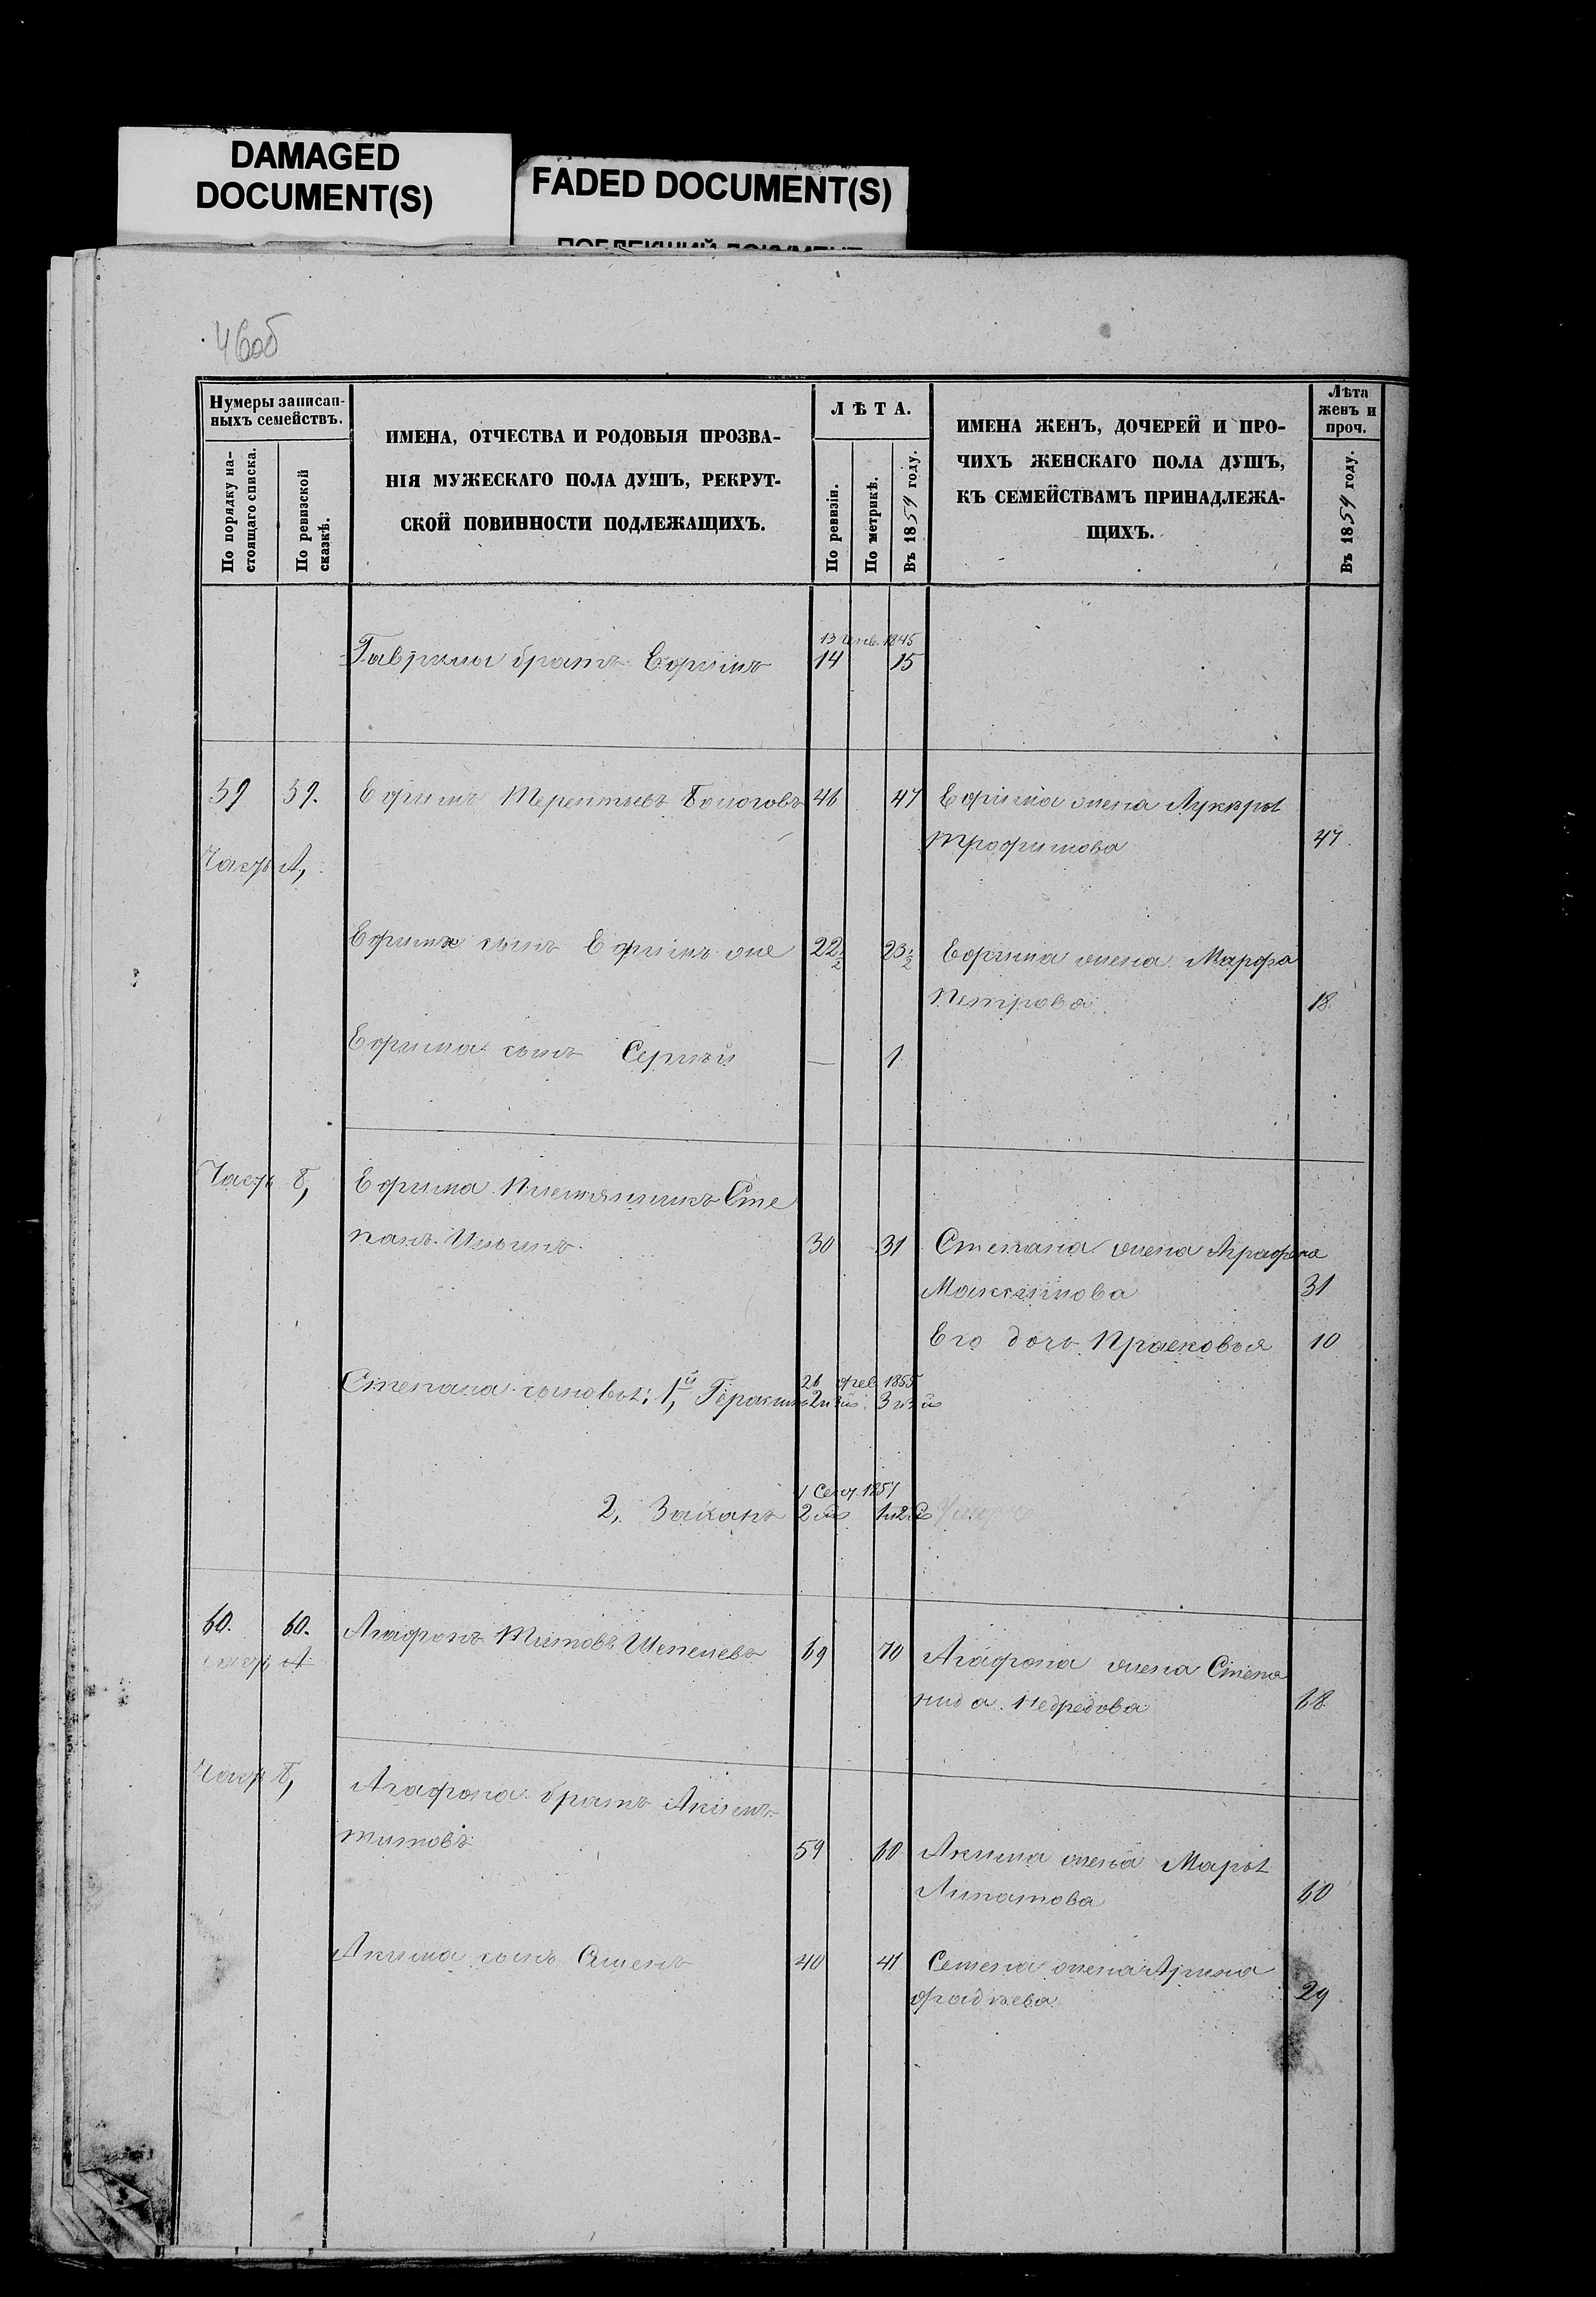 DAMAGED
DOCUMENT(S)
FADED DOCUMENT(S)
46об
Нумеры записан-
ныхъ семействъ.
По порядку на-
стоящаго списка.
По ревизской
сказкѣ.
ИМЕНА, ОТЧЕСТВА И РОДОВЫЯ ПРОЗВА-
НІЯ МУЖЕСКАГО ПОЛА ДУШЪ, РЕКРУТ-
СКОЙ ПОВИННОСТИ ПОДЛЕЖАЩИХЪ.
ЛѢТА.
По ревизіи.
По метрикѣ.
Въ 1859 году.
ИМЕНА ЖЕНЪ, ДОЧЕРЕЙ И ПРО-
ЧИХЪ ЖЕНСКАГО ПОЛА ДУШЪ,
КЪ СЕМЕЙСТВАМЪ ПРИНАДЛЕЖА-
ЩИХЪ.
Лѣта
женъ и
проч.
Въ 1859 году.
1845
Гаврила братъ Ефимъ 14 15
59 59. Ефимъ Терентьевъ 46 47 Ефима жена
Трофимова 47
А,
Ефима сынъ Ефимъ же 22½ 23½ Ефима жена Марфа
Петрова 18
Ефима сынъ Сергѣй — 1
Б, Ефима племянникъ Сте
панъ Ильинъ 30 31 Степана жена Аграфена
Максимова 31
Его дочь Прасковья 10
26 фев. 1855
Степана сыновья: 1й,
1 Сент. 1857
2, Захаръ
60. 60. Агафонъ Титовъ Шепелевъ 69 70 Агафона жена Степа
нида 68
А
Б, Агафона братъ Акимъ
Титовъ 59 60 Акима жена Марья
Липатова 60
Акима сынъ Семенъ 40 41 Семена жена Арина
Фадѣева 29